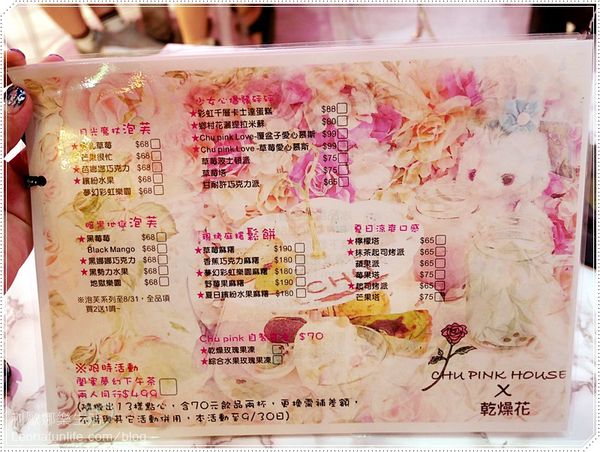 月光魔杖泡芙
草莓 $68
芒果很忙 $68
★芭娜娜巧克力 $68
★繽紛水果 $68
夢幻彩虹樂園 $68
少女心爆發
★彩虹千層卡士達蛋糕 $88
★鄉村花灑提拉米蘇 $80
★Chu pink Love-覆盆子愛心慕斯 $99
★Chu pink Love-草莓愛心慕斯 $99
草莓波士頓派 $75
草莓塔 $75
甘耐許巧克力派 $65
暗黑地獄泡芙
★黑莓莓 $68
Black Mango $68
★黑娜娜巧克力 $68
★黑勢力水果 $68
地獄樂園 $68
※泡芙系列至8/31，全品項
買2送1唷~
現烤麻糬鬆餅
★草莓麻糬 $190
香蕉巧克力麻糬 $180
★夢幻彩虹樂園麻糬 $190
野莓果麻糬 $190
★夏日繽紛水果麻糬 $180
夏日涼爽口感
★檸檬塔 $65
★抹茶起司烤派 $65
蘋果派 $65
莓果塔 $75
★起司烤派 $65
芒果塔 $75
Chu pink 自製 $70
★乾燥玫瑰果凍
★綜合水果玫瑰果凍
※限時活動
閨蜜夢幻下午茶
兩人同行$499
(隨機出13樣點心，含70元飲品兩杯，更換需補差額，
與其它活動併用，本活動至9/30日)
CHU PINK HOUSE
X
乾燥花
Leonafunlife.com/blog